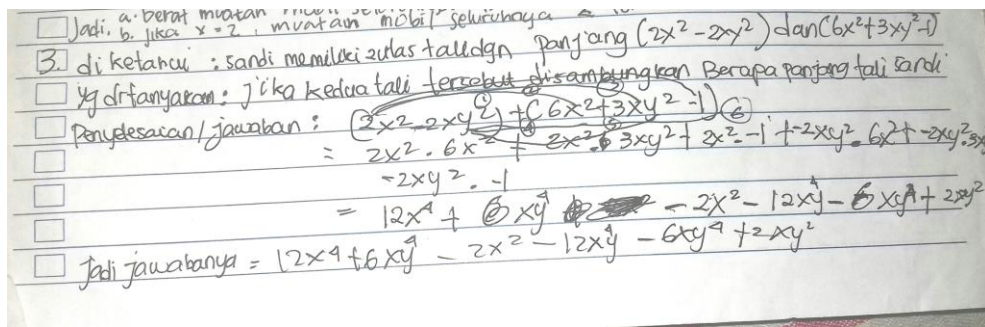 Jadi, a. berat muatan
b. jika x = 2, muatan mobil seluruhnya
3. diketahui : sandi memiliki 2 utas tali dgn panjang (2x² - 2xy²) dan (6x² + 3xy² - 1)
yg ditanyakan : jika kedua tali tersebut disambungkan Berapa panjang tali sandi
Penyelesaian / jawaban : (2x² - 2xy²) + (6x² + 3xy² - 1)
= 2x² . 6x² + 2x² . 3xy² + 2x² . -1 + -2xy² . 6x² + -2xy² . 3x
-2xy² . -1
= 12x⁴ + 6xy⁴ - 2x² - 12xy⁴ - 6xy⁴ + 2xy²
Jadi jawabanya = 12x⁴ + 6xy⁴ - 2x² - 12xy⁴ - 6xy⁴ + 2xy²